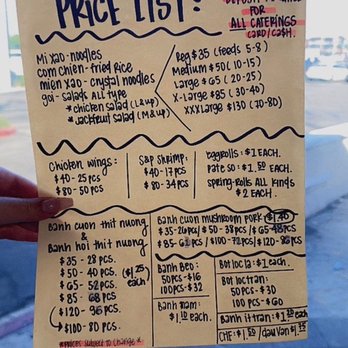 PRICE LIST!
FOR
ALL CATERINGS
CARD/CASH.
Mi xao - noodles
com chien - fried Rice
mien xao - crystal noodles
goi - salads ALL type
*chicken salad (L & up)
*jackfruit salad (M & up)
Reg $35 (feeds 5-8)
Medium $50 (10-15)
Large $65 (20-25)
X-large $85 (30-40)
XXXLarge $130 (70-80)
Chicken wings:
$40-25 pcs
$80-50 pcs
S&P Shrimp:
$40-17 pcs
$80-34 pcs
eggrolls: $1 EACH.
rate so: $1.50 EACH.
spring-rolls ALL Kinds
$2 EACH.
Banh cuon thit nuong
&
Banh hoi thit nuong
$35 - 28 pcs.
$50 - 40 pcs.
$65 - 52 pcs.
$85 - 68 pcs
$120 - 96 pcs.
$100 - 80 pcs.
($1.25 each)
Banh cuon mushroom pork $1.40
$35-26pcs / $50-38 pcs / $65-48pcs
/ $100-72pcs / $120-88pcs
Banh Beo:
50pcs-$16
100pcs-$32
Banh ram:
$1.50 each.
Bot loc la: $1 each.
Bot loc tran:
50pcs - $30
100 pcs - $60
Banh it tran: $1.50 each.
CHF: $1.50 / dau Van $1.75
*PRICES subject to change*